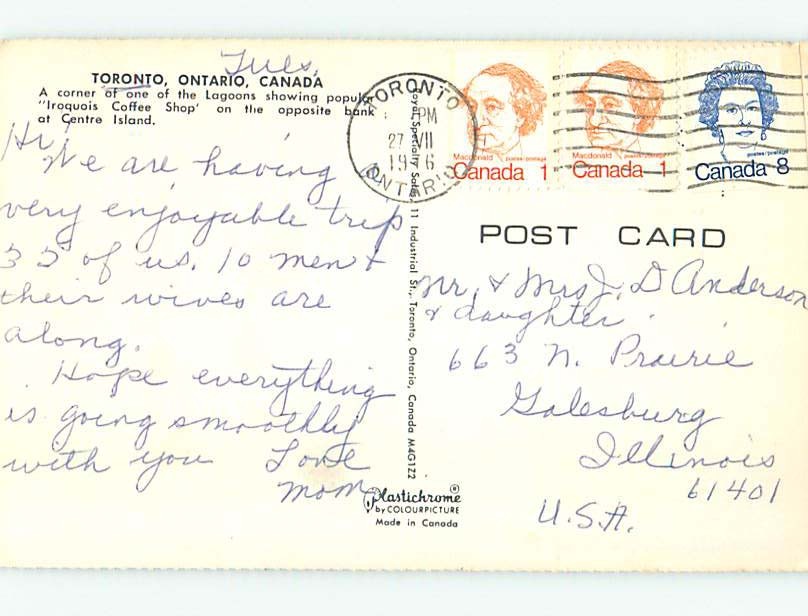 Tues.
TORONTO, ONTARIO, CANADA
A corner of one of the Lagoons showing popular
"Iroquois Coffee Shop' on the opposite bank
at Centre Island.
Hi!
We are having
very enjoyable trip
35 of us. 10 men &
their wives are
along.
Hope everything
is going smoothly
with you Love
Mom
Plastichrome ®
by COLOURPICTURE
Made in Canada
Royal Specialty Sales, 11 Industrial St., Toronto, Ontario, Canada M4G1Z2
TORONTO
PM
27 VII
19 6
ONTARIO
Macdonald postes/postage
Canada 1
Macdonald postes/postage
Canada 1
postes/postage
Canada 8
POST CARD
Mr. & Mrs J. D Anderson
& daughter
663 N. Prairie
Galesburg
Illinois
61401
U.S.A.